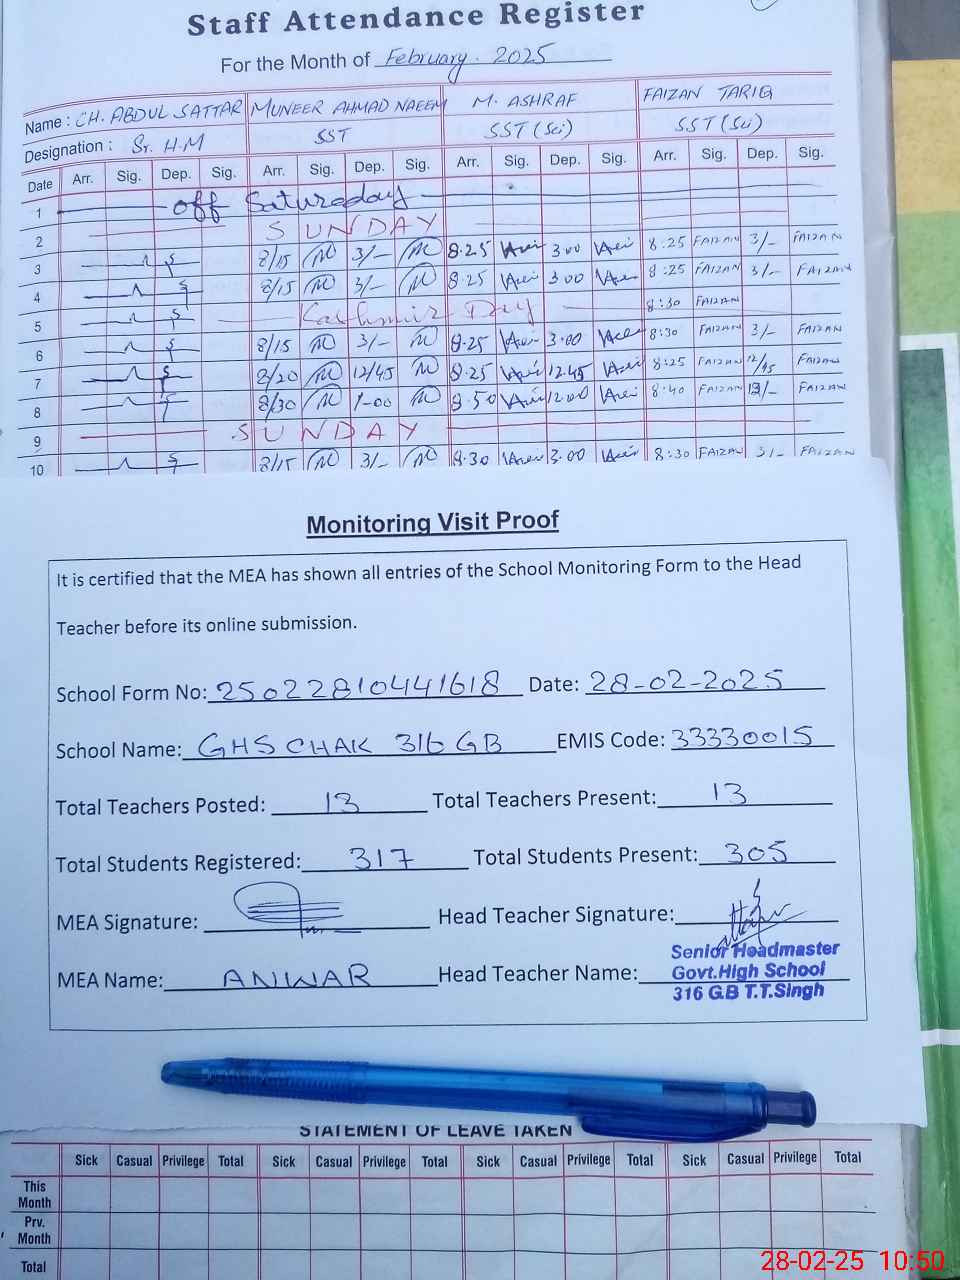 Staff Attendance Register
For the Month of February. 2025
Name : CH. ABDUL SATTAR MUNEER AHMAD NAEEM M. ASHRAF FAIZAN TARIQ
Designation : Sr. H.M SST SST (Sci) SST (Sci)
Date Arr. Sig. Dep. Sig. Arr. Sig. Dep. Sig. Arr. Sig. Dep. Sig. Arr. Sig. Dep. Sig.
1 off Satureday
2 SUNDAY
3 8/15 3/- 8.25 3.00 8:25 FAIZAN 3/- FAIZAN
4 8/15 3/- 8.25 3.00 8:25 FAIZAN 3/- FAIZAN
5 Kashmir Day 8:30 FAIZAN
6 8/15 3/- 8.25 3.00 8:30 FAIZAN 3/- FAIZAN
7 8/20 12/45 8.25 12.45 8:25 FAIZAN 12/45 FAIZAN
8 8/30 1-00 8.50 12.00 8:40 FAIZAN FAIZAN
9 SUNDAY
10 8/15 3/- 8.30 3.00 8:30 FAIZAN 3/- FAIZAN
Monitoring Visit Proof
It is certified that the MEA has shown all entries of the School Monitoring Form to the Head
Teacher before its online submission.
School Form No: 25022810441618 Date: 28-02-2025
School Name: GHS CHAK 316 GB EMIS Code: 33330015
Total Teachers Posted: 13 Total Teachers Present: 13
Total Students Registered: 317 Total Students Present: 305
MEA Signature: Head Teacher Signature:
MEA Name: ANWAR Head Teacher Name:
Senior Headmaster
Govt.High School
316 G.B T.T.Singh
STATEMENT OF LEAVE TAKEN
Sick Casual Privilege Total Sick Casual Privilege Total Sick Casual Privilege Total Sick Casual Privilege Total
This Month
Prv. Month
Total
28-02-25 10:50